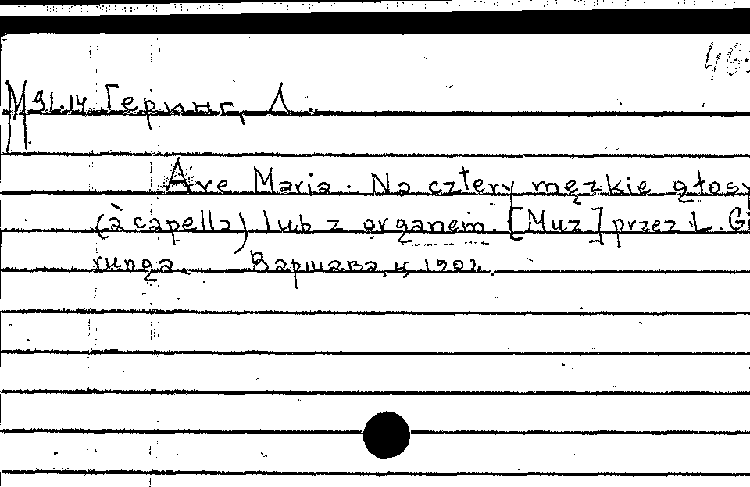 46
М 91.14 Геринг, Л.
Ave Maria. Na cztery męzkie głosy
(à capella) lub z organem. [Muz] przez L. Gi
runga. Варшава, ц. 1902.